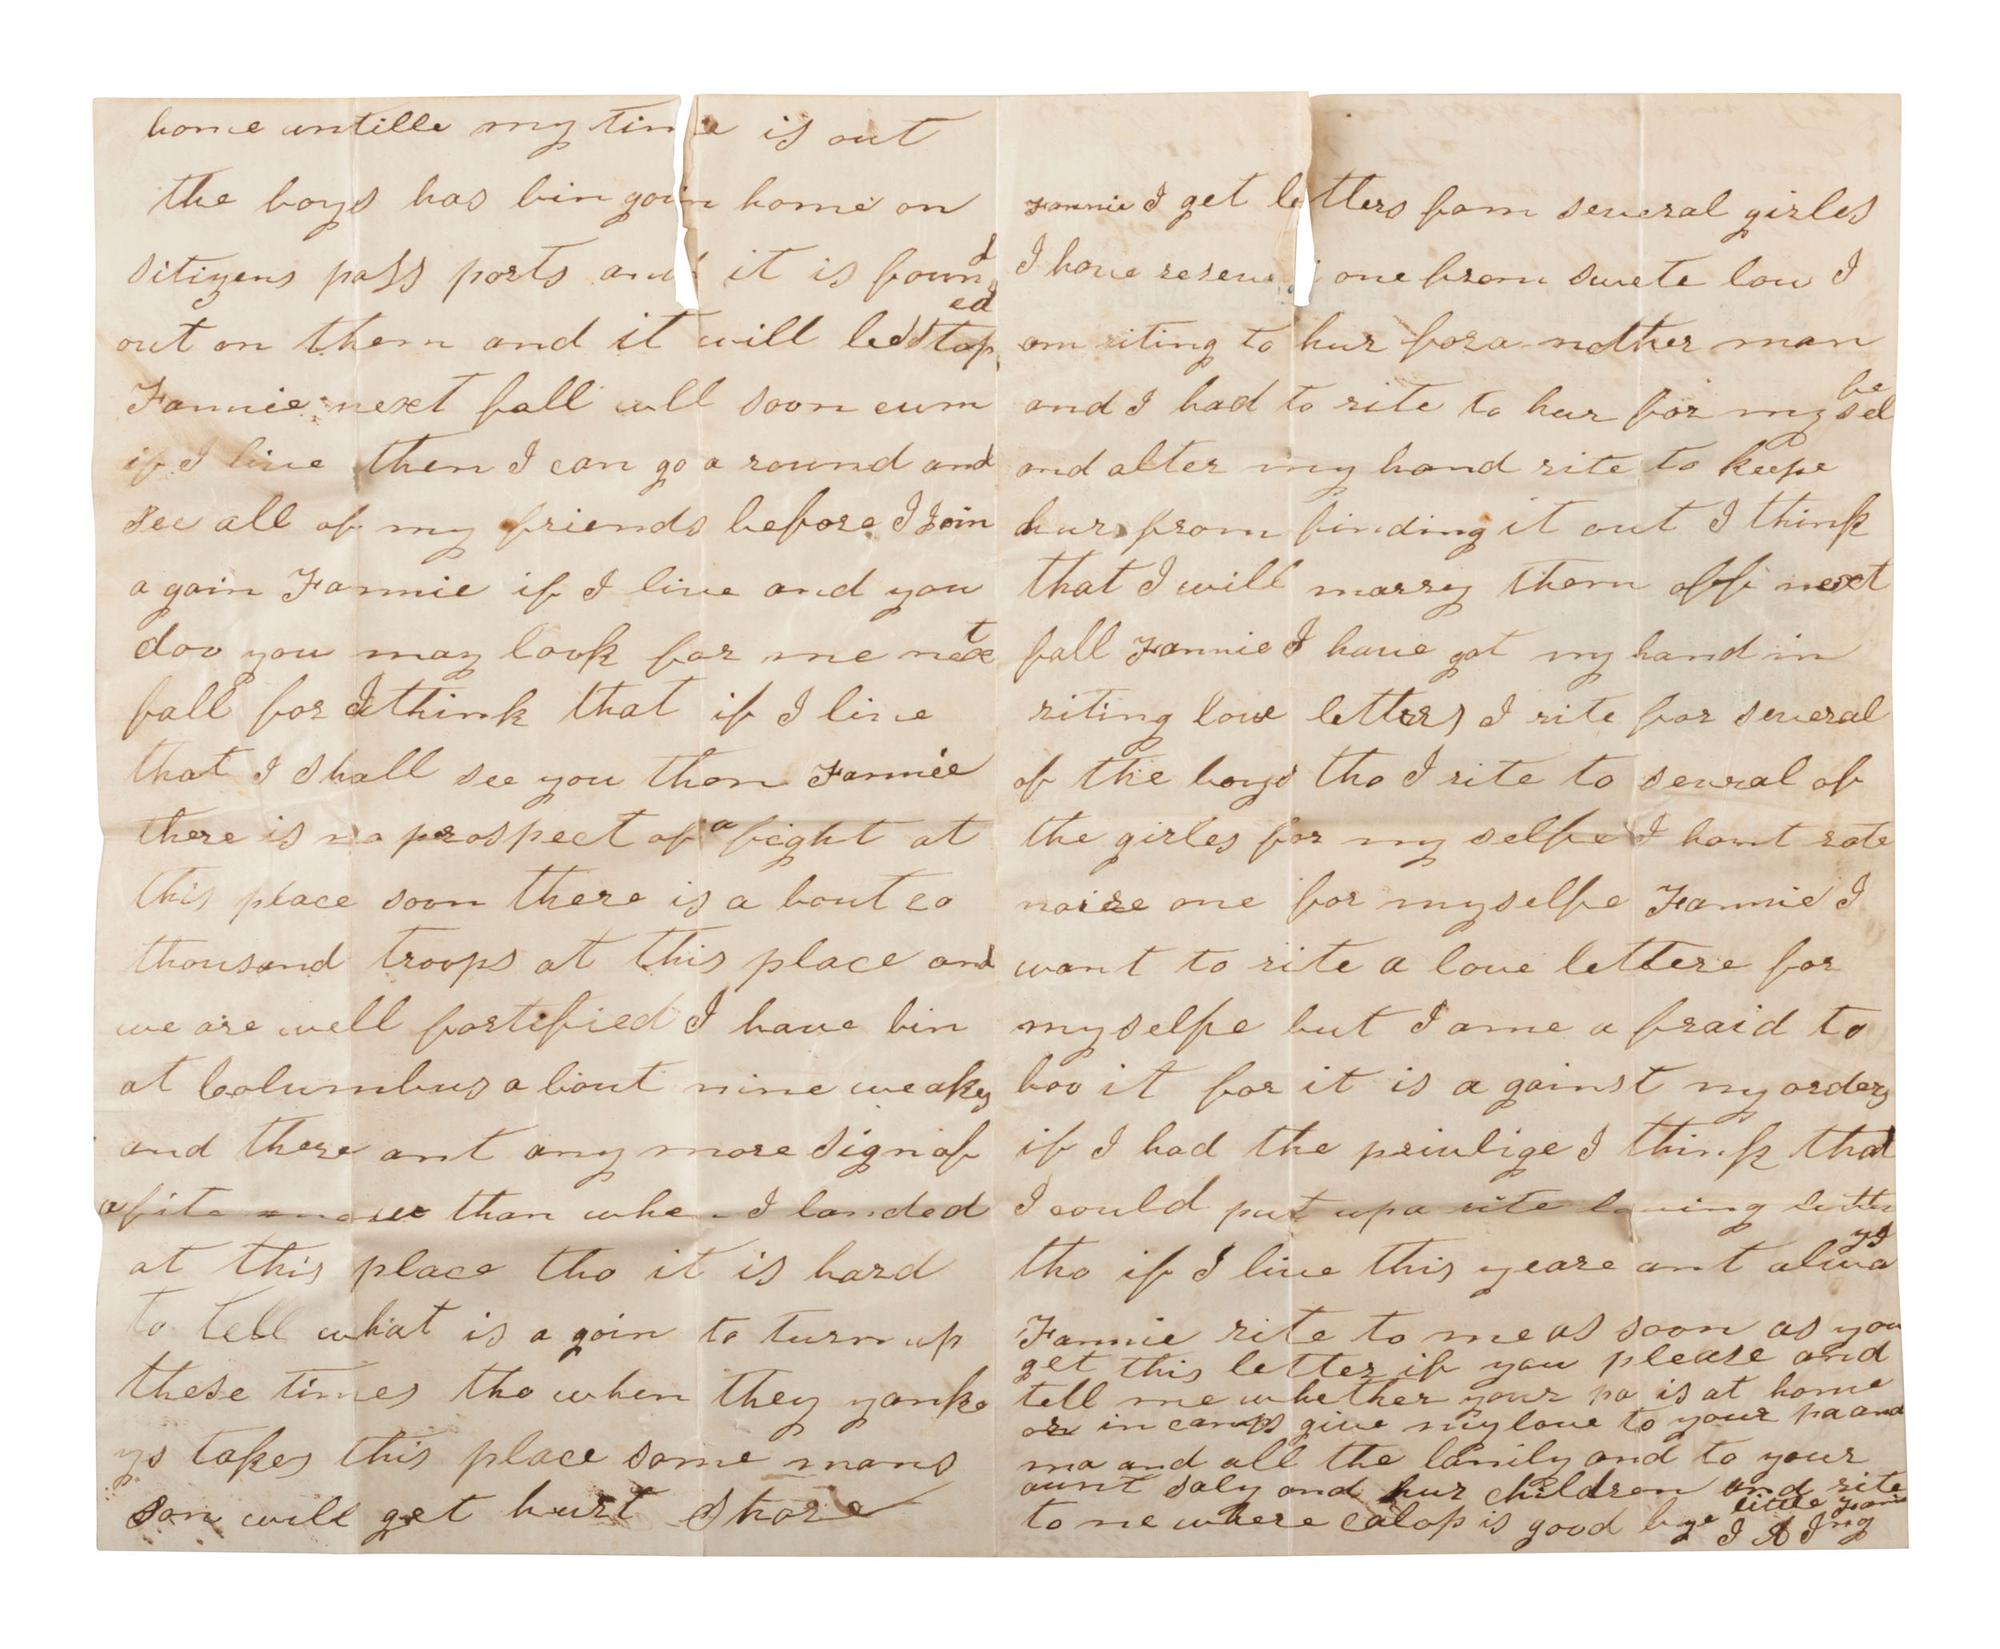 home untille my time is out
the boys has bin goin home on
sitizens pass ports and it is found
out on them and it will be stoped
Fannie next fall will soon cum
if I live then I can go a round and
see all of my friends before I join
a gain Fannie if I live and you
doo you may look for me next
fall for I think that if I live
that I shall see you then Fannie
there is no prospect of a fight at
this place soon there is a bout 20
thousand troops at this place and
we are well fortified I have bin
at Columbus a bout nine weaks
and there ant any more sign of
a fite than when I landed
at this place tho it is hard
to tell what is a goin to turn up
these times tho when they yanke
ys takes this place some mans
son will get hurt shore
Fannie I get letters fom several girles
I have reseved one from swete lov I
am riting to hur for a nother man
and I had to rite to hur for my self
and alter my hand rite to keepe
hur from finding it out I think
that I will marry them off next
fall Fannie I have got my hand in
riting love letters I rite for several
of the boys tho I rite to several of
the girles for my selfe I hant rote
one for myselfe Fannie I
want to rite a love lettere for
myselfe but I ame a fraid to
doo it for it is a gainst my orders
if I had the privlige I think that
I could put up a rite loving letter
tho if I live this yeare ant always
Fannie rite to me as soon as you
get this letter if you please and
tell me whether your pa is at home
or in camps give my love to your pa and
ma and all the family and to your
aunt saly and hur children and rite
to me where calop is good bye little Fannie
I A Ing